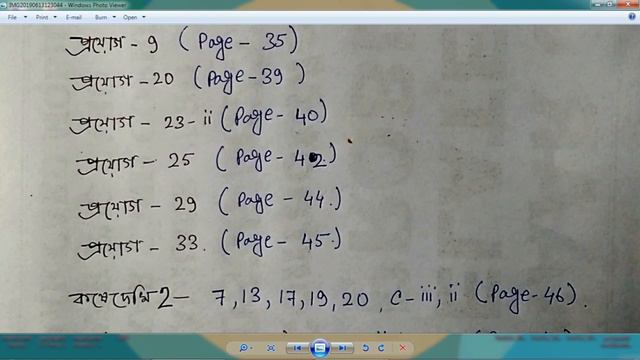 IMG20190613123044 - Windows Photo Viewer
File Print E-mail Burn Open
প্রয়োগ - 9 (Page - 35)
প্রয়োগ - 20 (Page - 39)
প্রয়োগ - 23 - ii (Page - 40)
প্রয়োগ - 25 (Page - 42.)
প্রয়োগ - 29 (Page - 44.)
প্রয়োগ - 33. (Page - 45.)
কষে দেখি 2 - 7, 13, 17, 19, 20, C - iii, ii (Page - 46).